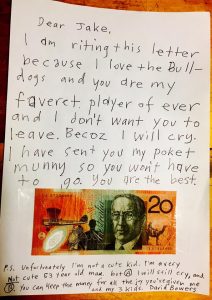 Dear Jake,
I am riting this letter
because I love the Bull-
dogs and you are my
faveret player of ever
and I don't want you to
leave. Becoz I will cry.
I have sent you my poket
munny so you won't have
to go. You are the best.
20
P.S. Unfortunately I'm not a cute kid. I'm a very
Not cute 53 year old man. but Ⓐ I will still cry, and
Ⓑ You can keep the money for all the joy you've given me
and my 3 kids. David Bowers